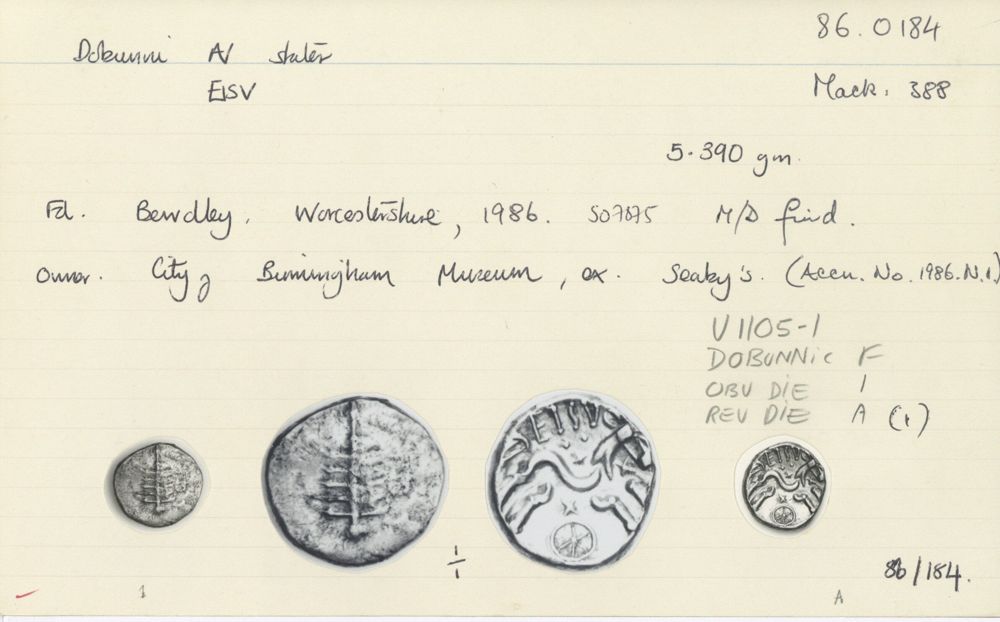 86.0184
Dobunni AV stater
EISV
Mack. 388
5.390 gm.
Fd. Bewdley, Worcestershire, 1986. SO7875 M/D find.
Owner. City of Birmingham Museum, ex. Seaby's. (Accn. No. 1986.N.1)
V1105-1
DOBUNNIC F
OBV DIE 1
REV DIE A (1)
EISV
1/1
86/184.
1
A